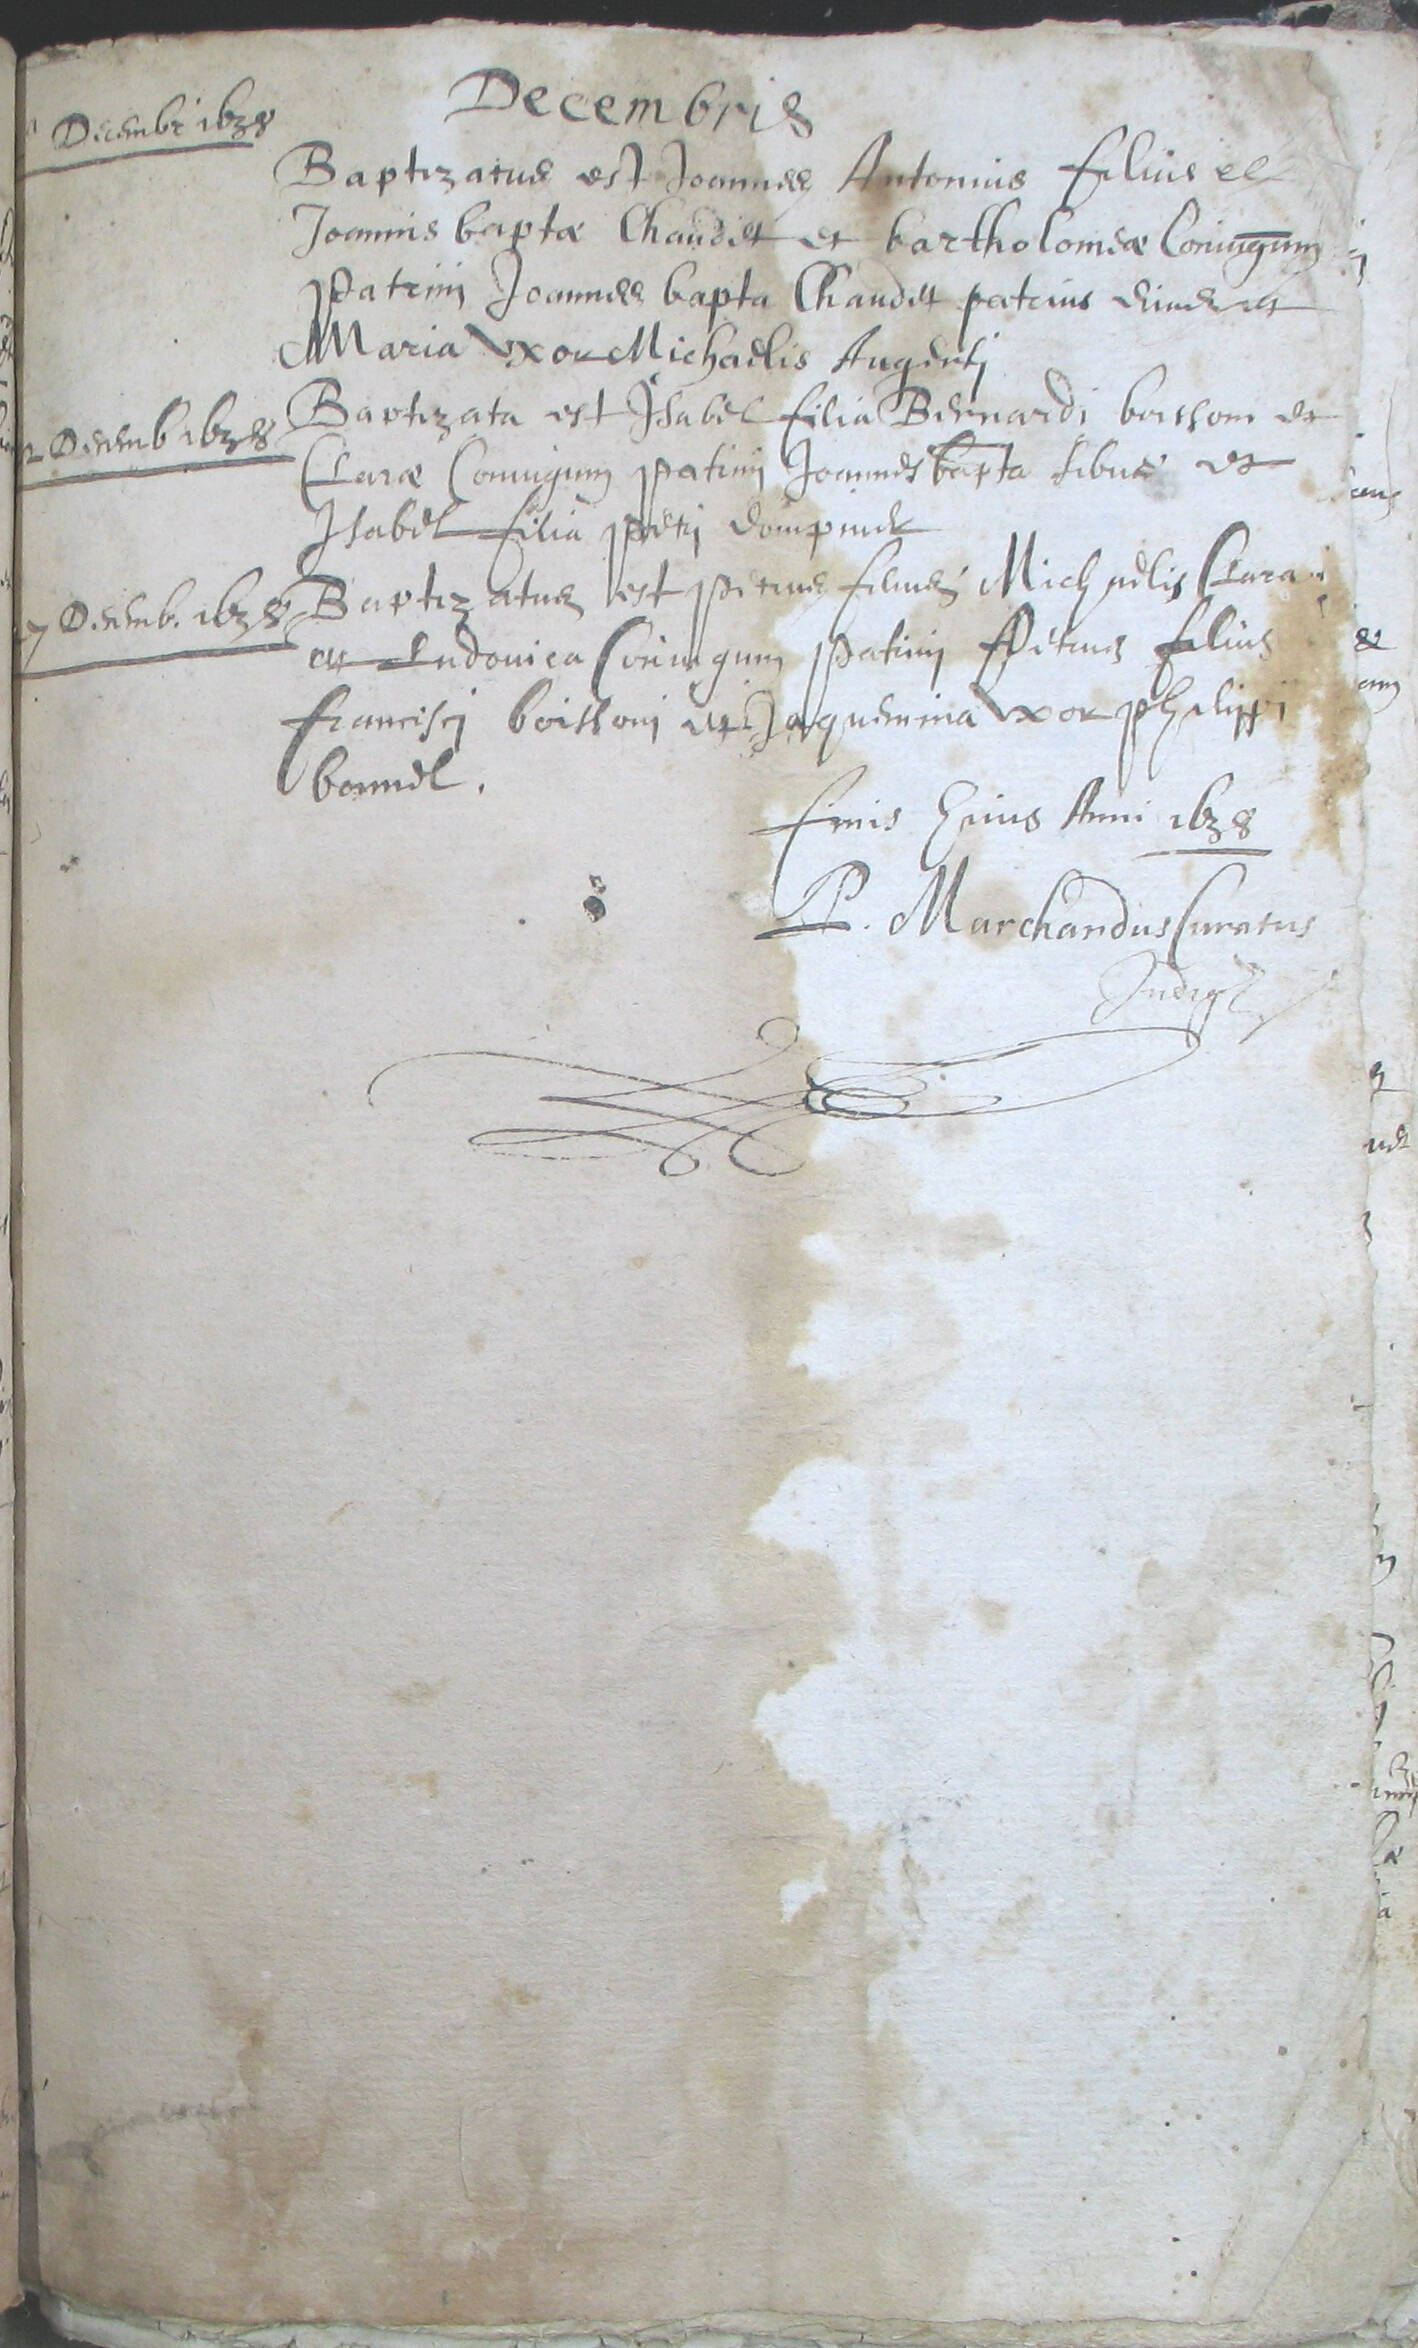 Decembris
Decembr 1638
Baptizatus est Joannes Antonius filius
Joannis baptæ Chaudet et bartholomeæ Coniugum
patrini Joannes bapta Chaudet patrius eius et
Maria Vxor Michaelis Augerij
Decemb 1638
Baptizata est Isabel filia Bernardi boissoni et
Claræ Coniugum patrini Joannes bapta et
Isabel filia petri
Decemb. 1638
Baptizatus est petrus filius Michaelis Clara
et Ludouica Coniugum patrini petrus filius
francisci boissoni et Jaquemina Vxor philippi
bonnel.
finis huius Anni 1638
P. Marchandus Curatus